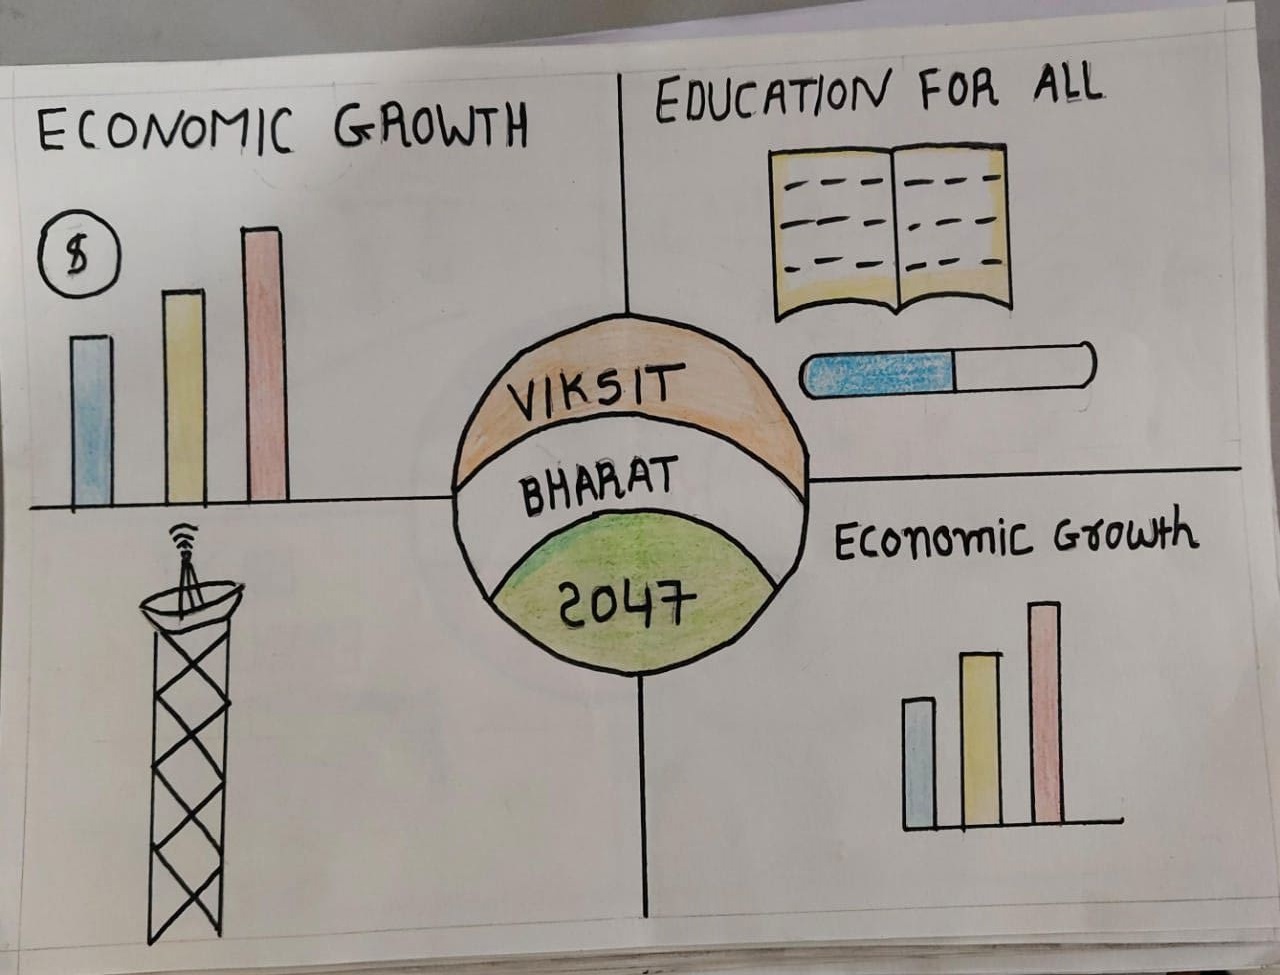 ECONOMIC GROWTH
$
EDUCATION FOR ALL
VIKSIT
BHARAT
2047
Economic Growth